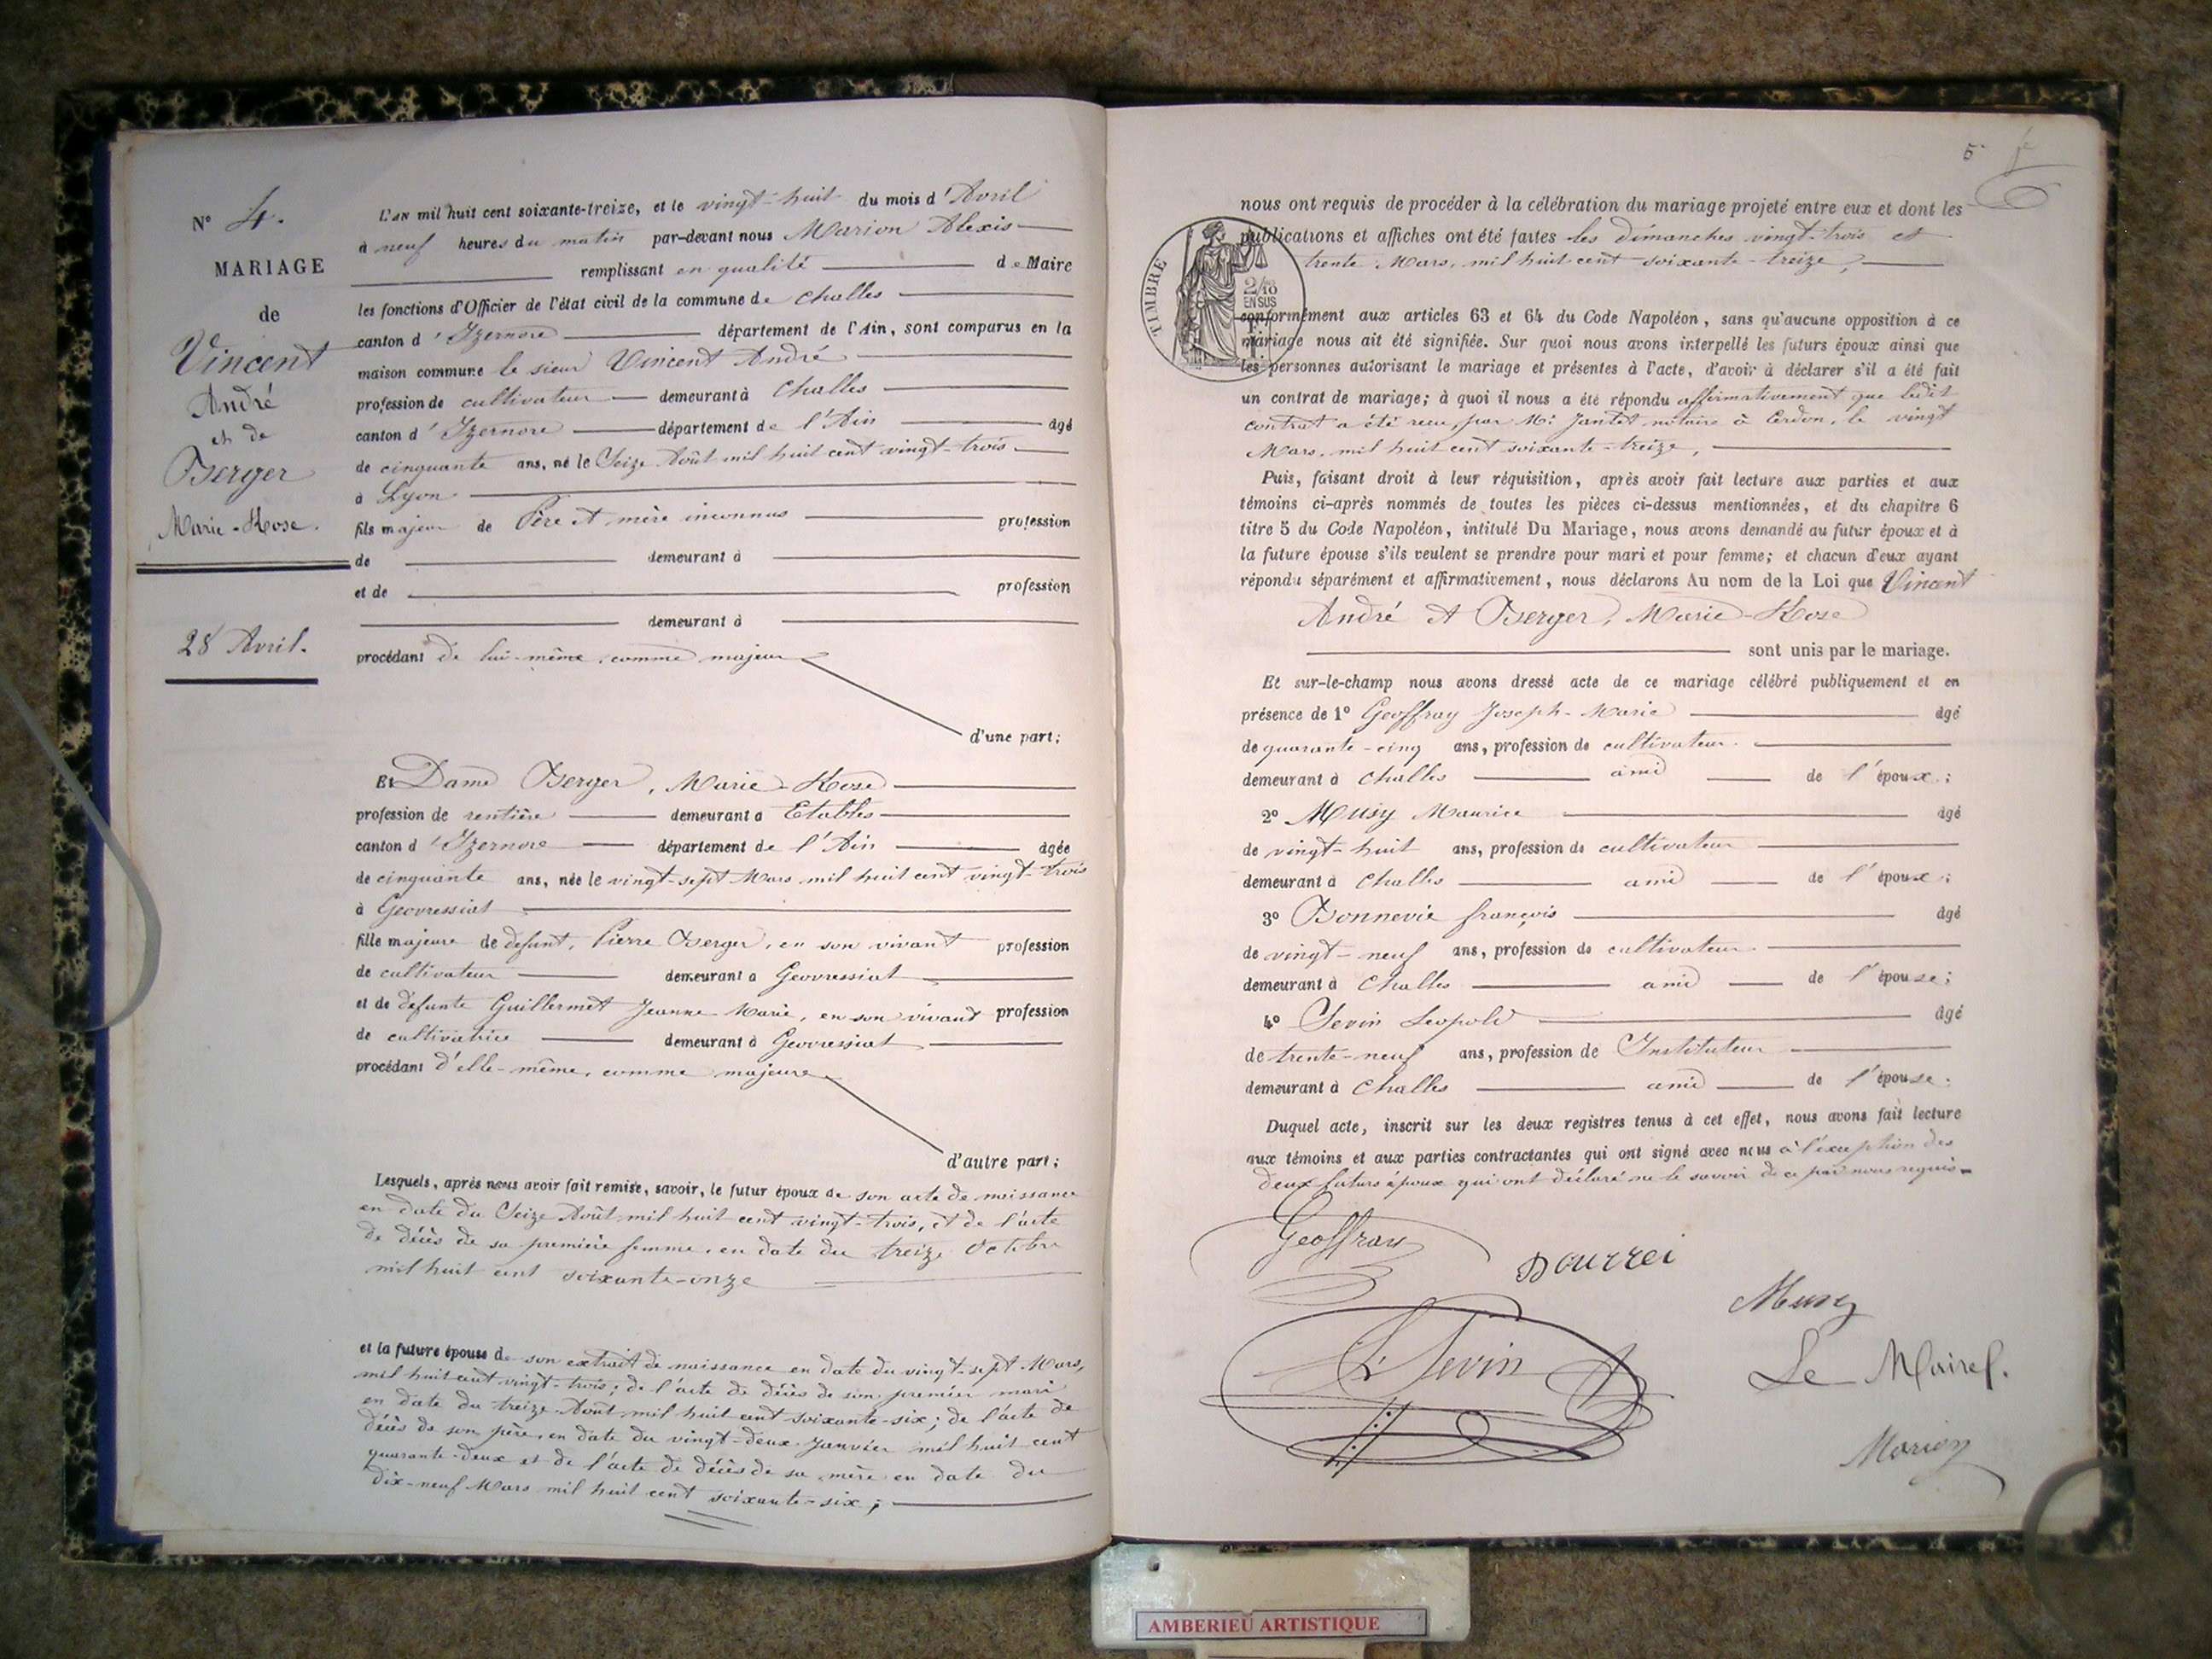 N° 4.
MARIAGE
de
Vincent
André
et de
Berger
Marie-Rose.
28 Avril.
L'an mil huit cent soixante-treize, et le vingt-huit du mois d'Avril
à neuf heures du matin par-devant nous Marion Alexis
remplissant en qualité de Maire
les fonctions d'Officier de l'état civil de la commune de Challes
canton d'Izernore département de l'Ain, sont comparus en la
maison commune le sieur Vincent André
profession de cultivateur demeurant à Challes
canton d'Izernore département de l'Ain âgé
de cinquante ans, né le Seize Août mil huit cent vingt-trois
à Lyon
fils majeur de Père et mère inconnus profession
de demeurant à
et de profession
demeurant à
procédant de lui-même, comme majeur
d'une part;
Et Dame Berger, Marie-Rose
profession de rentière demeurant à Etables
canton d'Izernore département de l'Ain âgée
de cinquante ans, née le vingt-sept Mars mil huit cent vingt-trois
à Geovressiat
fille majeure de défunt, Pierre Berger, en son vivant profession
de cultivateur demeurant à Geovressiat
et de défunte Guillermet Jeanne-Marie, en son vivant profession
de cultivatrice demeurant à Geovressiat
procédant d'elle-même, comme majeure
d'autre part;
Lesquels, après nous avoir fait remise, savoir, le futur époux de son acte de naissance
en date du Seize Août mil huit cent vingt-trois, et de l'acte
de décès de sa première femme, en date du treize Octobre
mil huit cent soixante-onze
et la future épouse de son extrait de naissance en date du vingt-sept Mars,
mil huit cent vingt-trois; de l'acte de décès de son premier mari
en date du treize Août mil huit cent soixante-six; de l'acte de
décès de son père, en date du vingt-deux Janvier mil huit cent
quarante-deux et de l'acte de décès de sa mère en date du
dix-neuf Mars mil huit cent soixante-six;
5
nous ont requis de procéder à la célébration du mariage projeté entre eux et dont les
publications et affiches ont été faites les dimanches vingt-trois et
trente Mars, mil huit cent soixante-treize,
TIMBRE
2/10
EN SUS
conformément aux articles 63 et 64 du Code Napoléon, sans qu'aucune opposition à ce
mariage nous ait été signifiée. Sur quoi nous avons interpellé les futurs époux ainsi que
les personnes autorisant le mariage et présentes à l'acte, d'avoir à déclarer s'il a été fait
un contrat de mariage; à quoi il nous a été répondu affirmativement que ledit
contrat a été reçu, par Me Jantet notaire à Cerdon, le vingt
Mars, mil huit cent soixante-treize,
Puis, faisant droit à leur réquisition, après avoir fait lecture aux parties et aux
témoins ci-après nommés de toutes les pièces ci-dessus mentionnées, et du chapitre 6
titre 5 du Code Napoléon, intitulé Du Mariage, nous avons demandé au futur époux et à
la future épouse s'ils veulent se prendre pour mari et pour femme; et chacun d'eux ayant
répondu séparément et affirmativement, nous déclarons Au nom de la Loi que Vincent
André et Berger, Marie-Rose
sont unis par le mariage.
Et sur-le-champ nous avons dressé acte de ce mariage célébré publiquement et en
présence de 1° Geoffray Joseph-Marie âgé
de quarante-cinq ans, profession de cultivateur.
demeurant à Challes ami de l'époux;
2° Musy Maurice âgé
de vingt-huit ans, profession de cultivateur
demeurant à Challes ami de l'époux;
3° Bonnevie françois âgé
de vingt-neuf ans, profession de cultivateur
demeurant à Challes ami de l'épouse;
4° Sevin Leopold âgé
de trente-neuf ans, profession de Instituteur
demeurant à Challes ami de l'épouse.
Duquel acte, inscrit sur les deux registres tenus à cet effet, nous avons fait lecture
aux témoins et aux parties contractantes qui ont signé avec nous à l'exception des
deux futurs époux qui ont déclaré ne le savoir de ce par nous requis
Geoffray
Musy
L. Sevin
Le Maire.
Marion
AMBERIEU ARTISTIQUE